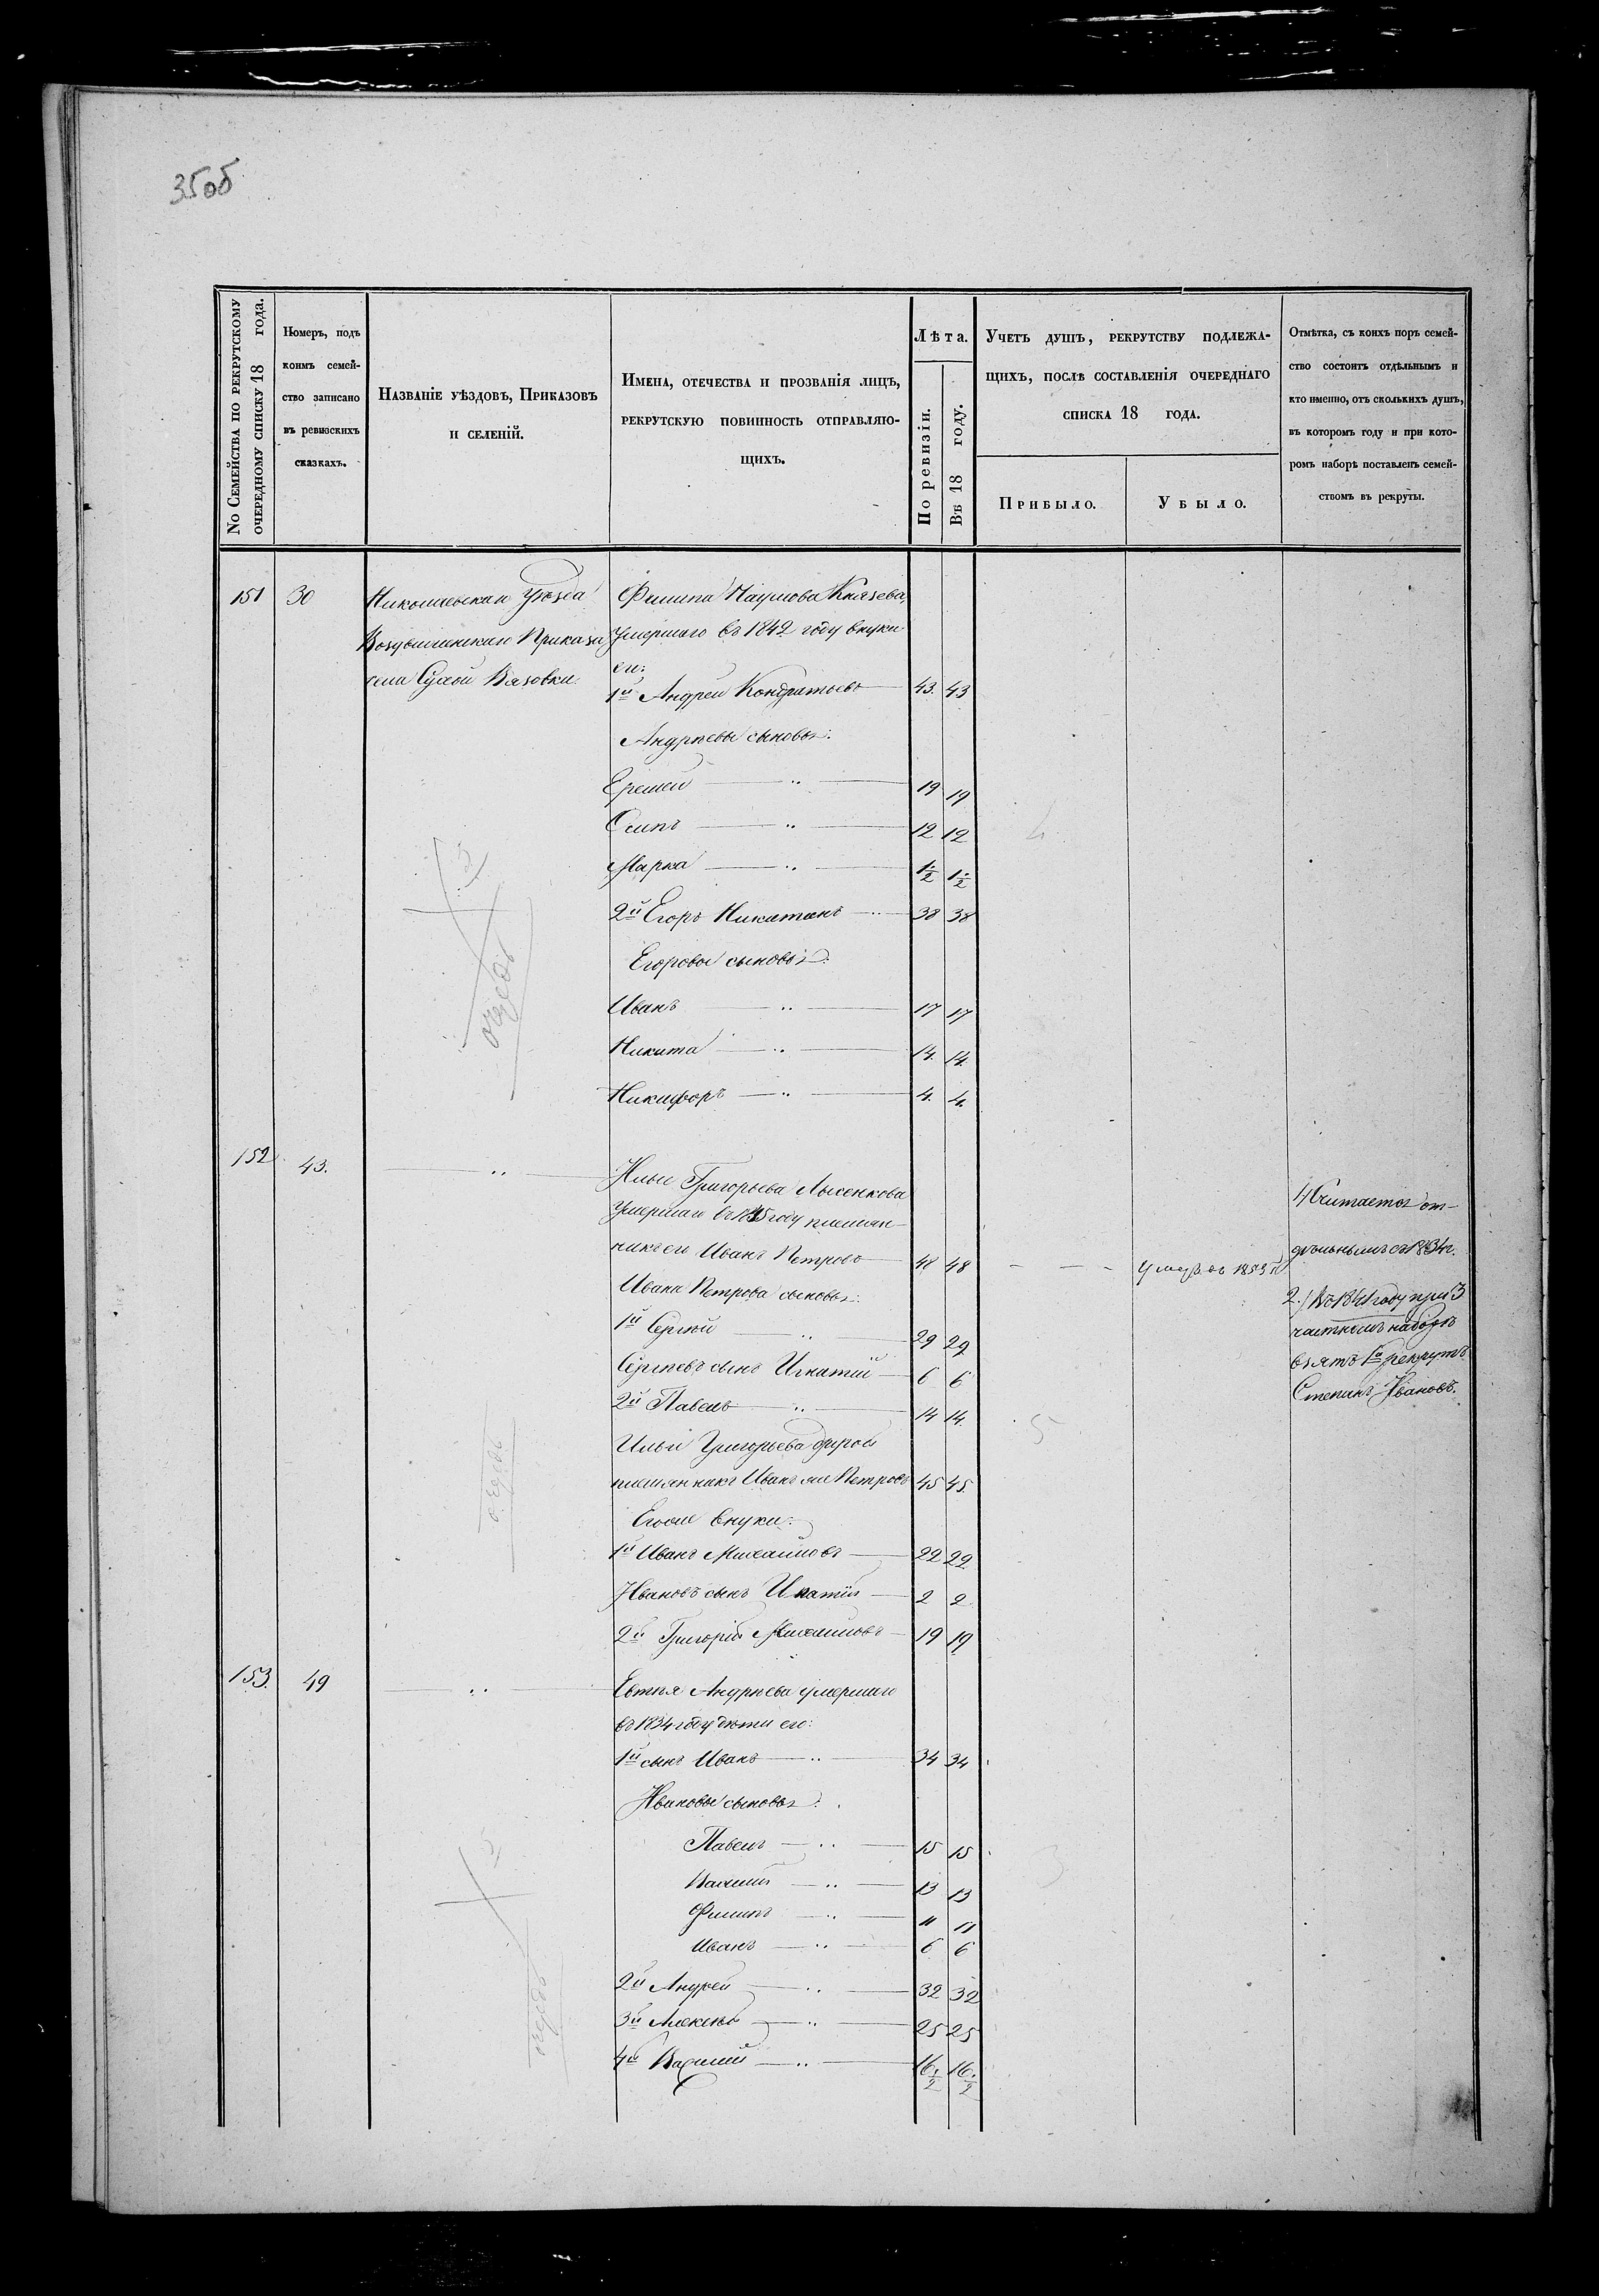 35об
No Семейства по рекрутскому очередному списку 18 года.
Номеръ, подъ
коимъ семей-
ство записано
въ ревизскихъ
сказкахъ.
Названіе уѣздовъ, Приказовъ
и селеній.
Имена, отечества и прозванія лицъ,
рекрутскую повинность отправляю-
щихъ.
Лѣта.
По ревизіи.
Въ 18 году.
Учетъ душъ, рекрутству подлежа-
щихъ, послѣ составленія очереднаго
списка 18 года.
Прибыло.
Убыло.
Отмѣтка, съ коихъ поръ семей-
ство состоитъ отдѣльнымъ и
кто именно, отъ сколькихъ душъ,
въ которомъ году и при кото-
ромъ наборѣ поставленъ семей-
ствомъ въ рекруты.
151 30 Николаевскаго Уѣзда Филипа Наумова Князева,
Воздвиженскаго Приказа умершаго въ 1842 году внуки
села Сухой Вязовки. его:
1й Андрей Кондратьевъ 43. 43
Андреевы сыновья:
Еремей " 19 19
Осипъ " 12 12
4
Марка " 1/2 1/2
5
2й Егоръ Никитинъ " 38 38
Егоровы сыновья:
очередь
Иванъ " 17 17
Никита " 14. 14.
Никифоръ " 4. 4.
152 43. " Ильи Григорьева Лысенкова
умершаго въ 1845 году племян-
никъ его Иванъ Петровъ 48 48 - - - Умеръ въ 1853 г.
Ивана Петрова сыновья:
1й Сергѣй " 29 29
Сергѣевъ сынъ Игнатій 6 6
2й Павелъ " 14 14.
5
Ильи Григорьева другой
племянникъ Иванъ же Петровъ 45 45.
очередь
Его же внуки:
1й Иванъ Михайловъ 22 22
Ивановъ сынъ Игнатій 2 2
2й Григорій Михайловъ 19 19
1) Считается от-
дѣльнымъ съ 1834 г.
2.) Въ 1841 году при 3
частномъ наборѣ
взятъ 1й рекрутъ
Степанъ Ивановъ.
153. 49 " Евтея Андреева умершаго
въ 1834 году дѣти его:
1й сынъ Иванъ " 34 34
Ивановы сыновья:
Павелъ " 15 15
5
3
Василій " 13 13
Филипъ " 11 11
Иванъ " 6 6
2й Андрей " 32 32
очередь
3й Алексѣй " 25 25
4й Василій " 16 1/2 16 1/2